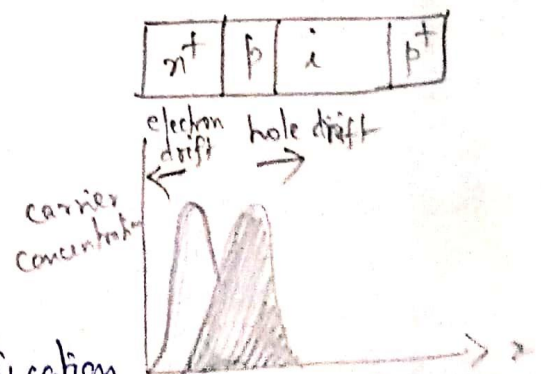 n+ p i p+
electron drift
hole drift
carrier
concentration
ication
x